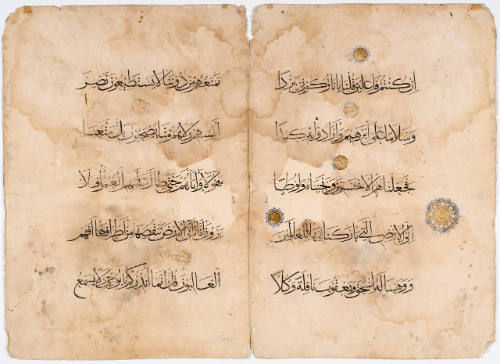 ان كنتم فاعلين قلنا يا نار كوني بردا
وسلاما على ابرهيم وارادوا به كيدا
فجعلناهم الاخسرين ونجيناه ولوطا
الى الارض التي باركنا فيها للعالمين
ووهبنا له اسحق ويعقوب نافلة وكلا
تمنعهم من دوننا لا يستطيعون نصر
انفسهم ولا هم منا يصحبون بل متعنا
هؤلاء وآباءهم حتى طال عليهم العمر افلا
يرون انا نأتي الارض ننقصها من اطرافها افهم
الغالبون قل انما انذركم بالوحي ولا يسمع